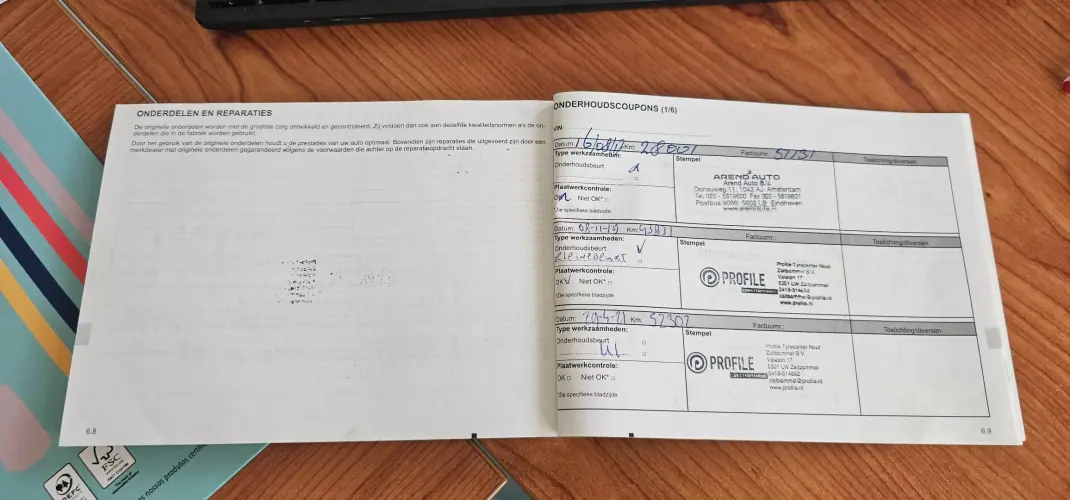 ONDERDELEN EN REPARATIES
De originele onderdelen worden met de grootste zorg ontwikkeld en gecontroleerd. Zij voldoen dan ook aan dezelfde kwaliteitsnormen als de on-
derdelen die in de fabriek worden gebruikt.
Door het gebruik van de originele onderdelen houdt u de prestaties van uw auto optimaal. Bovendien zijn reparaties die uitgevoerd zijn door een
merkdealer met originele onderdelen gegarandeerd volgens de voorwaarden die achter op de reparatieopdracht staan.
6.8
ONDERHOUDSCOUPONS (1/6)
VIN:
Datum: Km: 28001 Factuurnr.: 51131 Toelichting/diversen
Type werkzaamheden: Stempel
Onderhoudsbeurt
AREND AUTO
Arend Auto B.V.
Donauweg 11, 1043 AJ Amsterdam
Tel. 020 - 5819600 Fax 020 - 5819601
Postbus 9098, 5602 LB Eindhoven
Plaatwerkcontrole:
OK Niet OK*
*Zie specifieke bladzijde
Datum: 08-11-19 Km: Factuurnr.: Toelichting/diversen
Type werkzaamheden: Stempel
Onderhoudsbeurt
Kleinebeurt
PROFILE
Profile Tyrecenter Nout
Zaltbommel B.V.
Valeton 17
5301 LW Zaltbommel
0418-514652
zaltbommel@profile.nl
www.profile.nl
Plaatwerkcontrole:
OK Niet OK*
*Zie specifieke bladzijde
Datum: Km: 52302 Factuurnr.: Toelichting/diversen
Type werkzaamheden: Stempel
Onderhoudsbeurt
PROFILE
Profile Tyrecenter Nout
Zaltbommel B.V.
Valeton 17
5301 LW Zaltbommel
0418-514652
zaltbommel@profile.nl
www.profile.nl
Plaatwerkcontrole:
OK Niet OK*
*Zie specifieke bladzijde
6.9
FSC
PEFC
nossos produtos